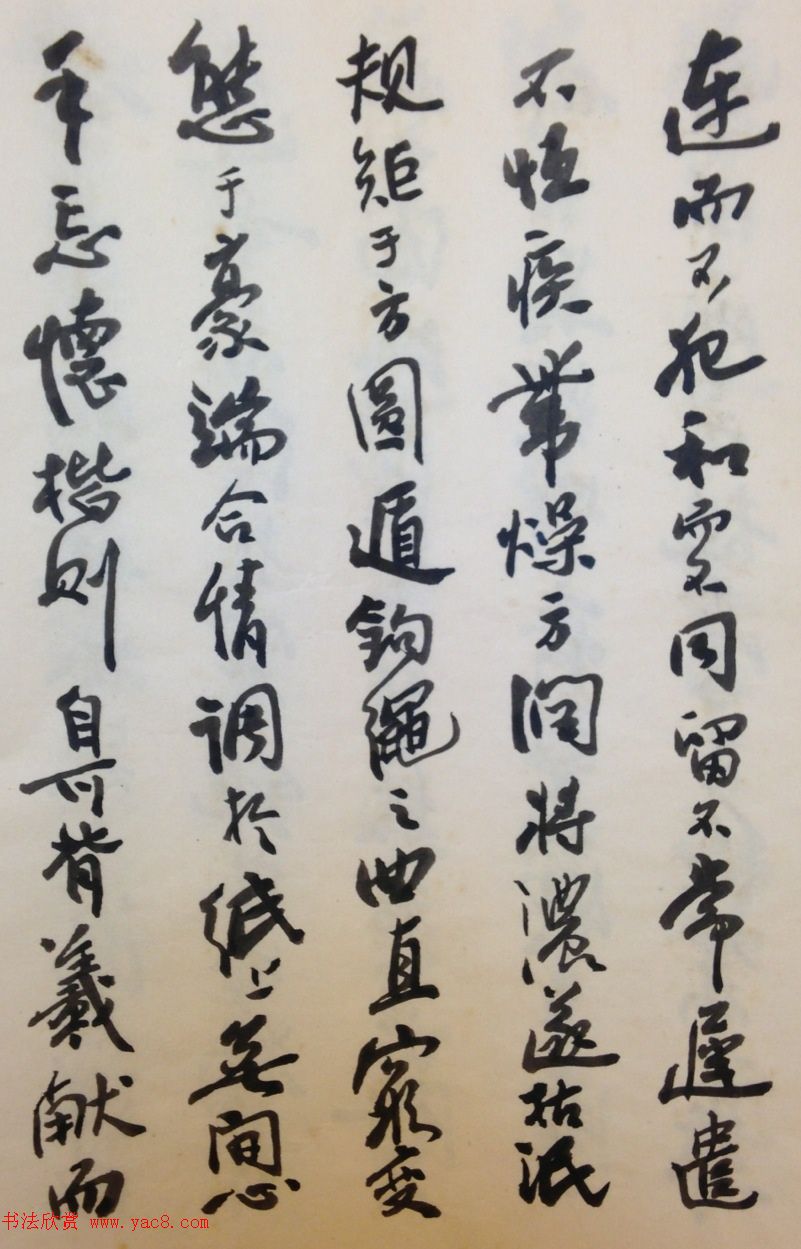 違而不犯和而不同留不常遲遣
不恒疾帶燥方潤將濃遂枯泯
規矩于方圓遁鈎繩之曲直窮变
態于豪端合情調於紙上無間心
手忘懷楷則自可背羲献而
书法欣赏 www.yac8.com